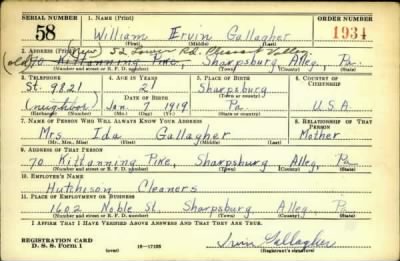 SERIAL NUMBER 1. NAME (Print) ORDER NUMBER
58 William Ervin Gallagher 1934
(First) (Middle) (Last)
2. ADDRESS (Print) (New) 52 Lower Rd. Pleasant Valley
(old) 70 Kittanning Pike, Sharpsburg Alleg. Pa.
(Number and street or R. F. D. number) (Town) (County) (State)
3. TELEPHONE 4. AGE IN YEARS 5. PLACE OF BIRTH 6. COUNTRY OF CITIZENSHIP
St. 9821 21 Sharpsburg
DATE OF BIRTH
(neighbor) Jan. 7 1919 Pa U.S.A.
7. NAME OF PERSON WHO WILL ALWAYS KNOW YOUR ADDRESS 8. RELATIONSHIP OF THAT PERSON
Mrs Ida Gallagher Mother
(Mr., Mrs., Miss) (First) (Middle) (Last)
9. ADDRESS OF THAT PERSON
70 Kittanning Pike, Sharpsburg Alleg. Pa
(Number and street or R. F. D. number) (Town) (County) (State)
10. EMPLOYER'S NAME
Hutchison Cleaners
11. PLACE OF EMPLOYMENT OR BUSINESS
1602 Noble St. Sharpsburg Alleg. Pa
(Number and street or R. F. D. number) (Town) (County) (State)
I AFFIRM THAT I HAVE VERIFIED ABOVE ANSWERS AND THAT THEY ARE TRUE.
REGISTRATION CARD
D. S. S. Form 1 16—17105 Irvin Gallagher